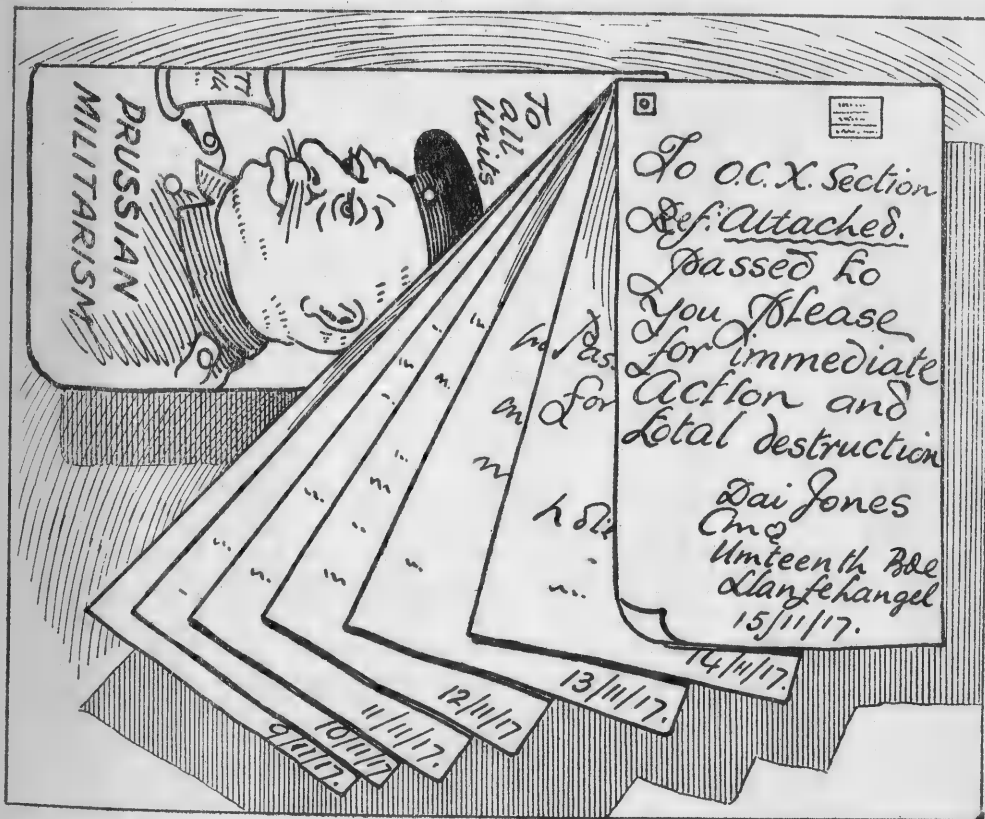 PRUSSIAN
MILITARISM
To
all
Units
To O.C.X. Section
Ref: Attached.
passed to
you please
for immediate
Action and
total destruction
Dai Jones
Umteenth Bde
Llanfehangel
15/11/17.
Pas
for
14/11/17.
13/11/17.
12/11/17
11/11/17.
10/11/17
9/11/17.